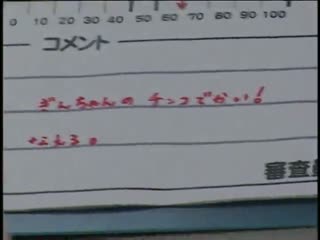 0 10 20 30 40 50 60 70 80 90 100
コメント
ぎんちゃんのチンコでかい!
なえる。
審査員